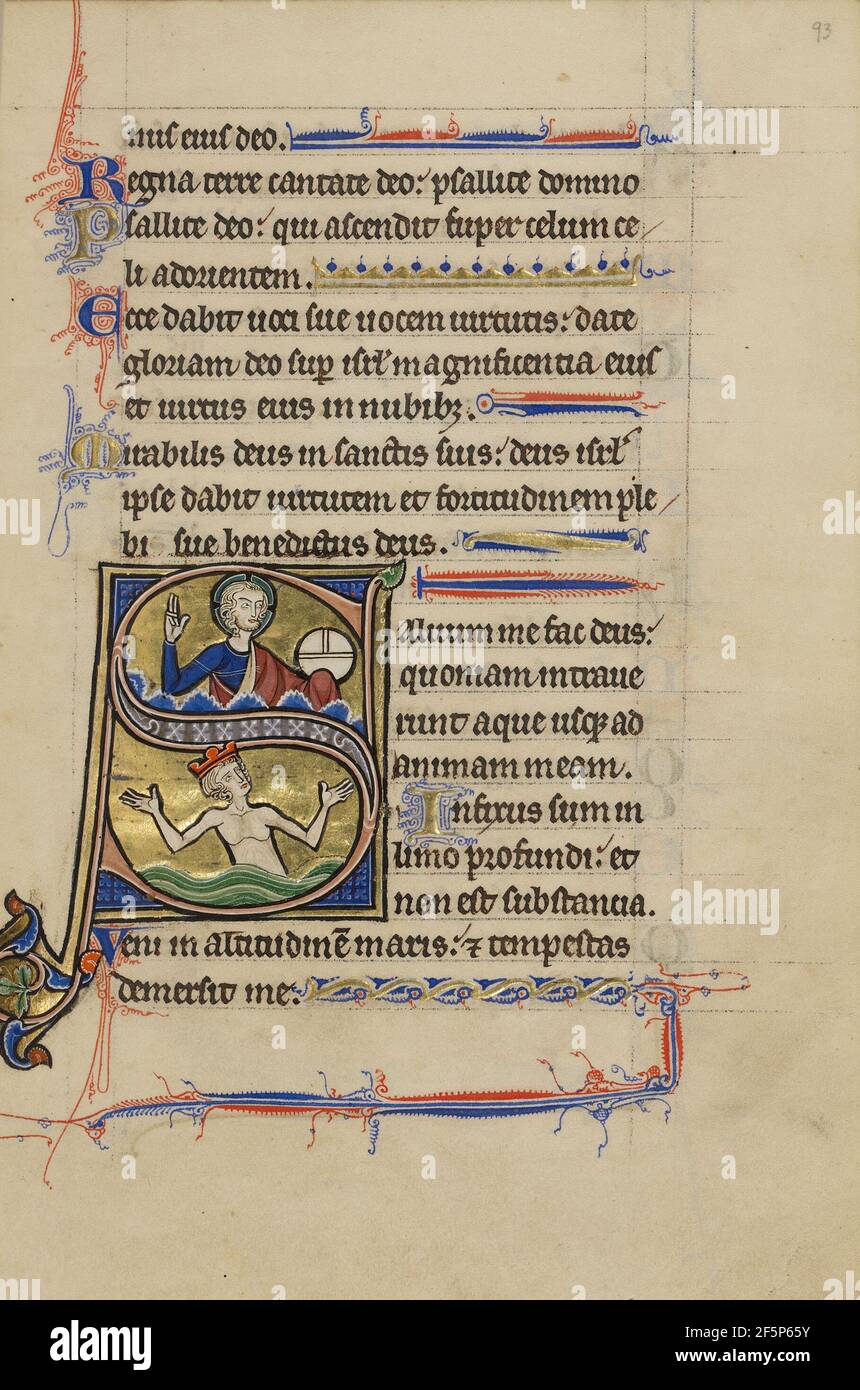 93
nus eius deo.
Regna terre cantate deo: psallite domino
Psallite deo: qui ascendit super celum ce
li ad orientem.
Ecce dabit uoci sue uocem uirtutis: date
gloriam deo sup isrl magnificentia eius
et uirtus eius in nubibꝫ.
Mirabilis deus in sanctis suis: deus isrl
ipse dabit uirtutem et fortitudinem ple
bi sue benedictus deus.
Saluum me fac deus:
quoniam intraue
runt aque usqꝫ ad
animam meam.
Infixus sum in
limo profundi: et
non est substancia.
Veni in altitudinē maris: ⁊ tempestas
demersit me.
alamy
Image ID: 2F5P65Y
www.alamy.com